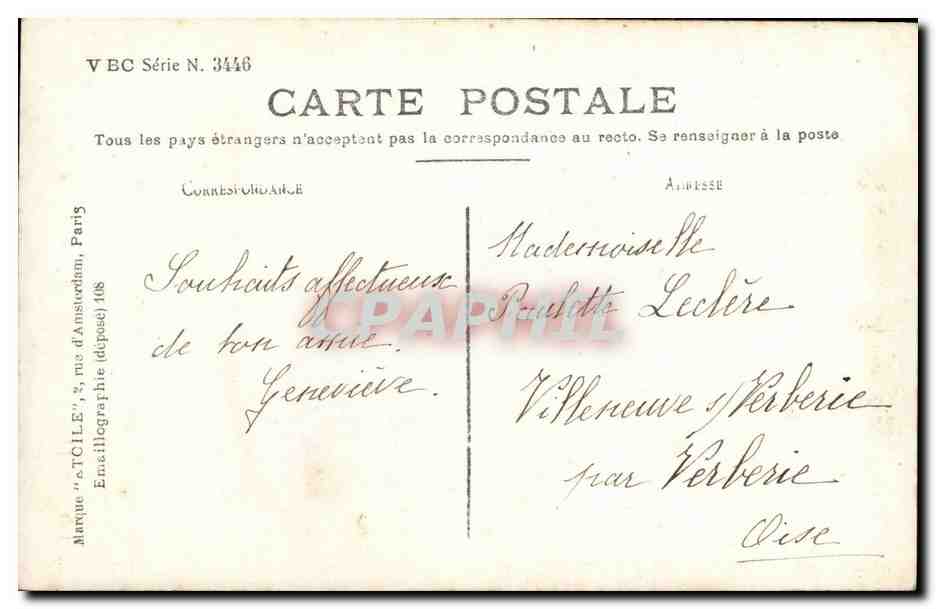 VBC Série N. 3446
CARTE POSTALE
Tous les pays étrangers n'acceptent pas la correspondance au recto. Se renseigner à la poste.
CORRESPONDANCE
ADRESSE
Marque "ETOILE", 2, rue d'Amsterdam, Paris
Emaillographie (déposé) 108
Souhaits affectueux
de ton amie.
Geneviève.
Mademoiselle
Paulette Leclère
Villeneuve s/Verberie
par Verberie
Oise
CPAPHIL